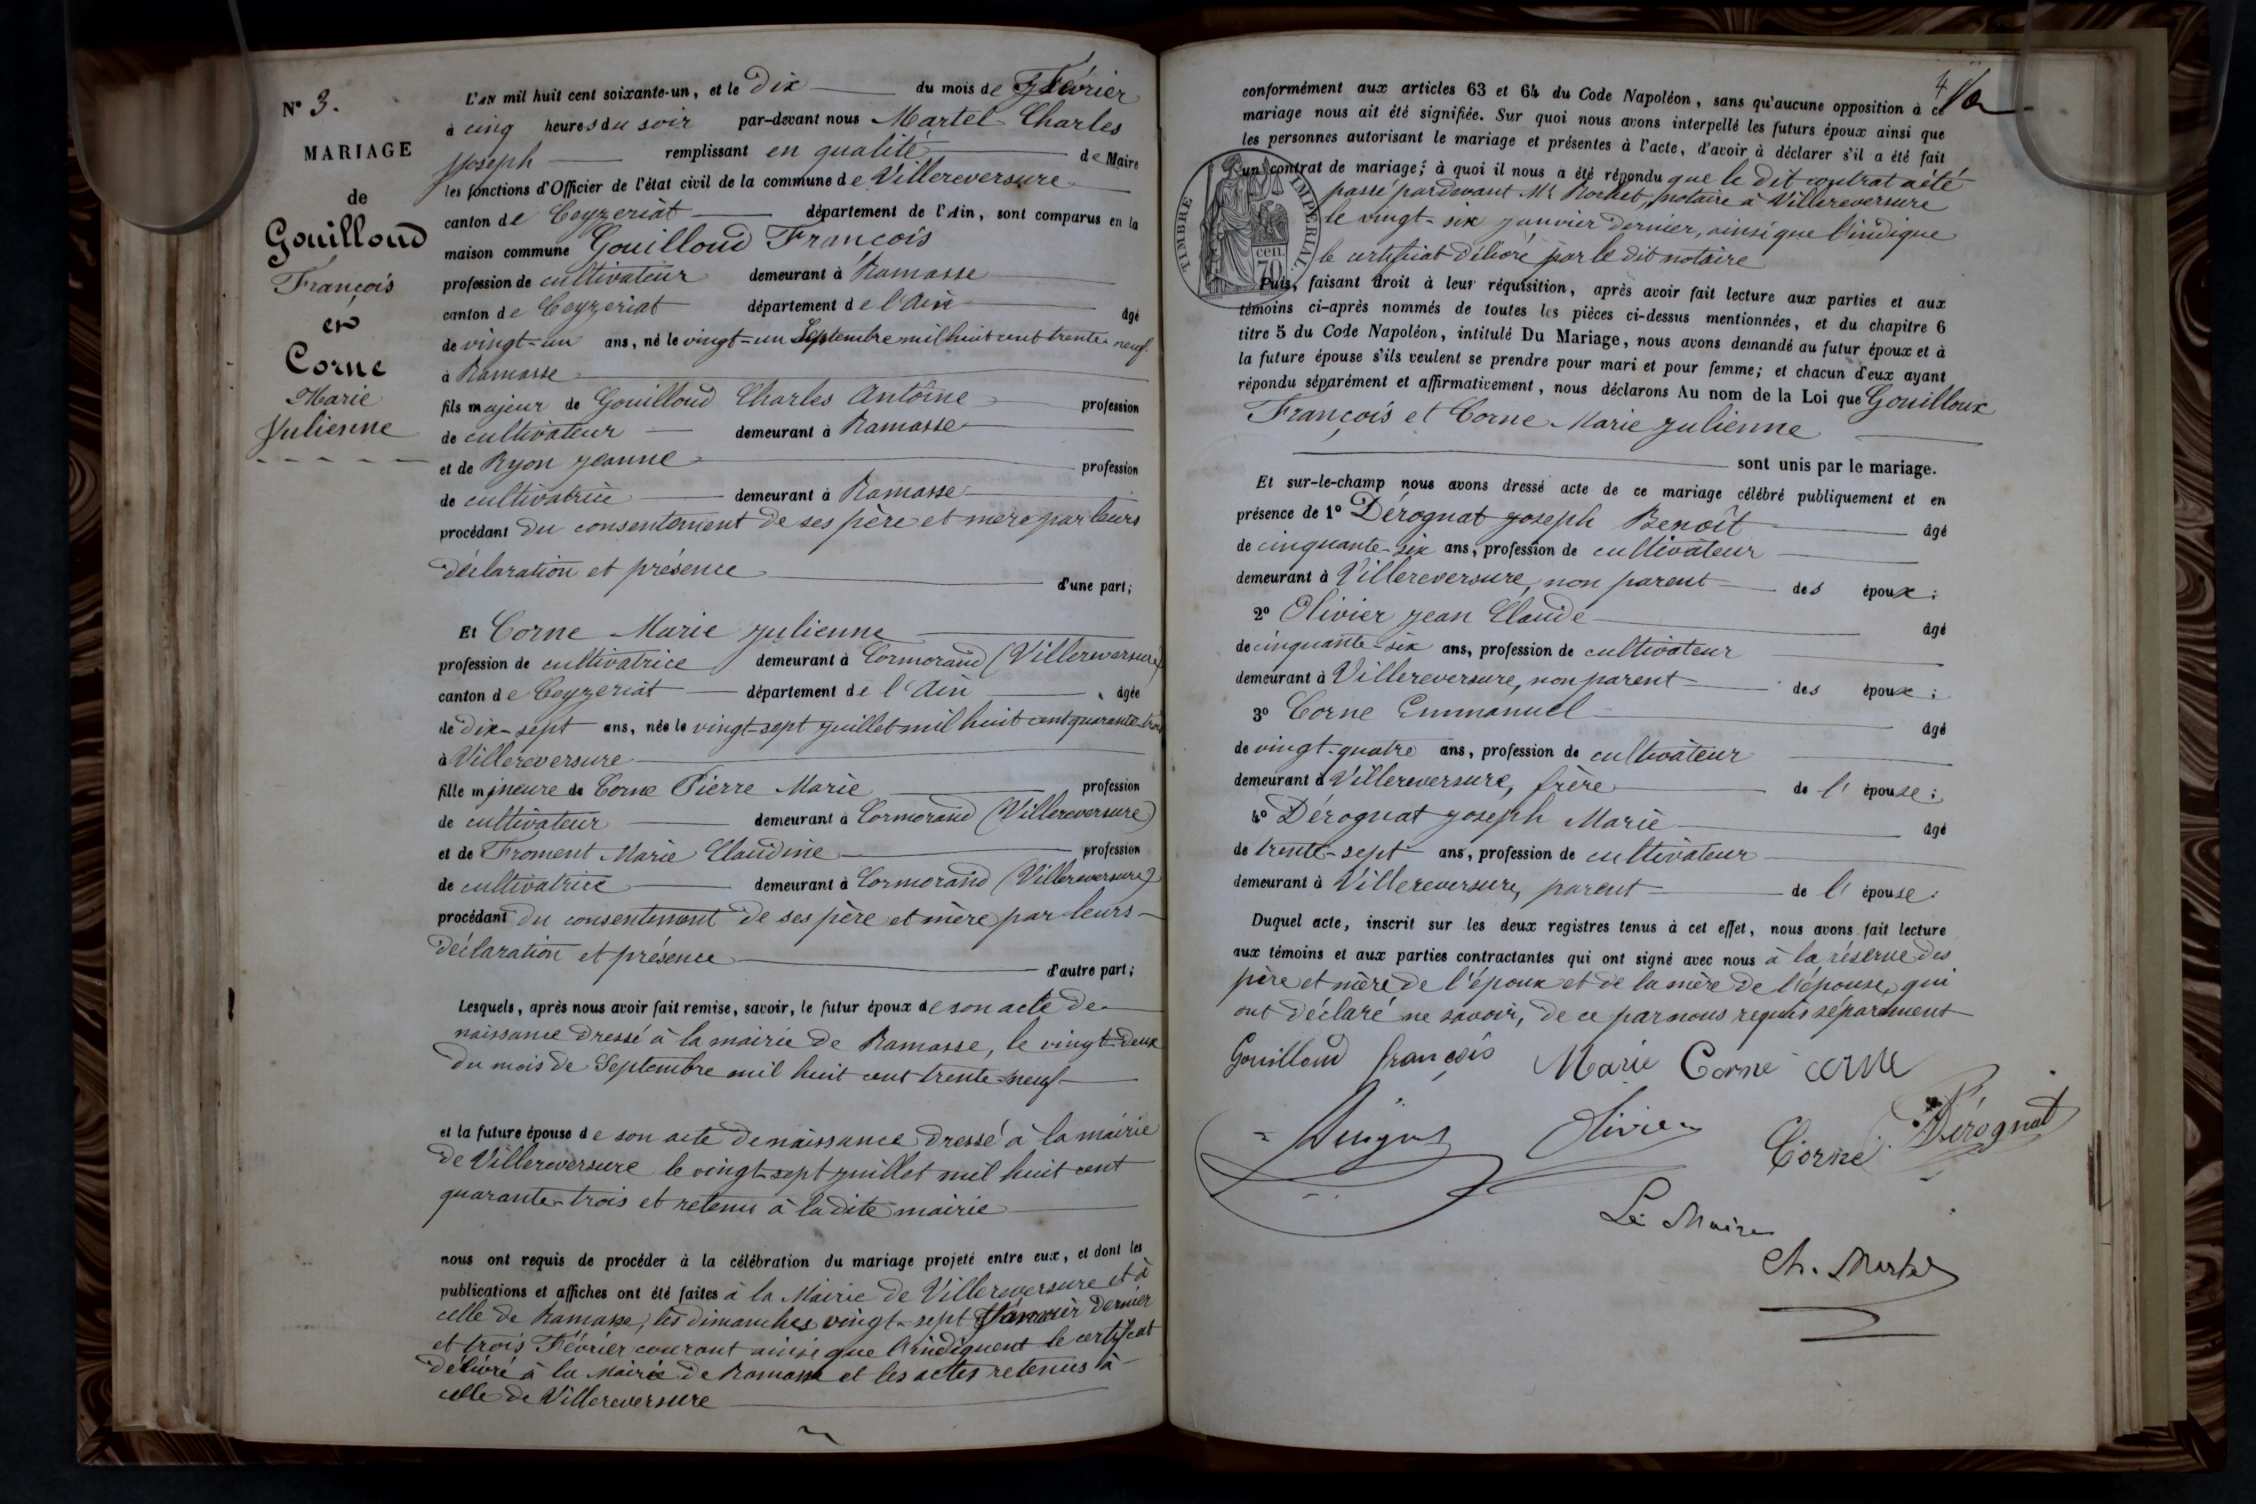 N° 3.
MARIAGE
de
Gouilloud
François
et
Corne
Marie
Julienne
L'AN mil huit cent soixante-un, et le Dix du mois de Février
à cinq heures du soir par-devant nous Martel Charles
Joseph remplissant en qualité de Maire
les fonctions d'Officier de l'état civil de la commune de Villereversure
canton de Ceyzeriat département de l'Ain, sont comparus en la
maison commune Gouilloud François
profession de cultivateur demeurant à Ramasse
canton de Ceyzeriat département de l'Ain âgé
de vingt-un ans, né le vingt-un Septembre mil huit cent trente-neuf
à Ramasse
fils majeur de Gouilloud Charles Antoine profession
de cultivateur demeurant à Ramasse
et de Ryon Jeanne profession
de cultivatrice demeurant à Ramasse
procédant du consentement de ses père et mère par leurs
déclaration et présence d'une part;
Et Corne Marie Julienne
profession de cultivatrice demeurant à Cormorand (Villereversure)
canton de Ceyzeriat département de l'Ain âgée
de dix-sept ans, née le vingt-sept juillet mil huit cent quarante-trois
à Villereversure
fille mineure de Corne Pierre Marie profession
de cultivateur demeurant à Cormorand (Villereversure)
et de Froment Marie Claudine profession
de cultivatrice demeurant à Cormorand (Villereversure)
procédant du consentement de ses père et mère par leurs
déclaration et présence d'autre part;
Lesquels, après nous avoir fait remise, savoir, le futur époux de son acte de
naissance dressé à la mairie de Ramasse, le vingt-deux
du mois de Septembre mil huit cent trente-neuf
et la future épouse de son acte de naissance dressé à la mairie
de Villereversure le vingt-sept juillet mil huit cent
quarante-trois et retenu à la dite mairie
nous ont requis de procéder à la célébration du mariage projeté entre eux, et dont les
publications et affiches ont été faites à la Mairie de Villereversure et à
celle de Ramasse, les dimanches vingt-sept Janvier dernier
et trois Février courant ainsi que l'indiquent le certificat
délivré à la Mairie de Ramasse et les actes retenus à
celle de Villereversure
4
conformément aux articles 63 et 64 du Code Napoléon, sans qu'aucune opposition à ce
mariage nous ait été signifiée. Sur quoi nous avons interpellé les futurs époux ainsi que
les personnes autorisant le mariage et présentes à l'acte, d'avoir à déclarer s'il a été fait
un contrat de mariage; à quoi il nous a été répondu que le dit contrat a été
passé pardevant Mr Rochet, notaire à Villereversure
le vingt-six janvier dernier, ainsi que l'indique
le certificat délivré par le dit notaire
TIMBRE IMPERIAL
cen.
70
Puis, faisant droit à leur réquisition, après avoir fait lecture aux parties et aux
témoins ci-après nommés de toutes les pièces ci-dessus mentionnées, et du chapitre 6
titre 5 du Code Napoléon, intitulé Du Mariage, nous avons demandé au futur époux et à
la future épouse s'ils veulent se prendre pour mari et pour femme; et chacun d'eux ayant
répondu séparément et affirmativement, nous déclarons Au nom de la Loi que Gouilloux
François et Corne Marie Julienne
sont unis par le mariage.
Et sur-le-champ nous avons dressé acte de ce mariage célébré publiquement et en
présence de 1° Dérognat Joseph Benoît âgé
de cinquante-six ans, profession de cultivateur
demeurant à Villereversure, non parent des époux;
2° Olivier Jean Claude âgé
de cinquante-six ans, profession de cultivateur
demeurant à Villereversure, non parent des époux;
3° Corne Emmanuel âgé
de vingt-quatre ans, profession de cultivateur
demeurant à Villereversure, frère de l'épouse;
4° Dérognat Joseph Marie âgé
de trente-sept ans, profession de cultivateur
demeurant à Villereversure, parent de l'épouse.
Duquel acte, inscrit sur les deux registres tenus à cet effet, nous avons fait lecture
aux témoins et aux parties contractantes qui ont signé avec nous à la réserve des
père et mère de l'époux et de la mère de l'épouse, qui
ont déclaré ne savoir, de ce par nous requis séparément
Gouilloud françois Marie Corne corne
Olivier
Corne Dérognat
Le Maire
Ch. Martel